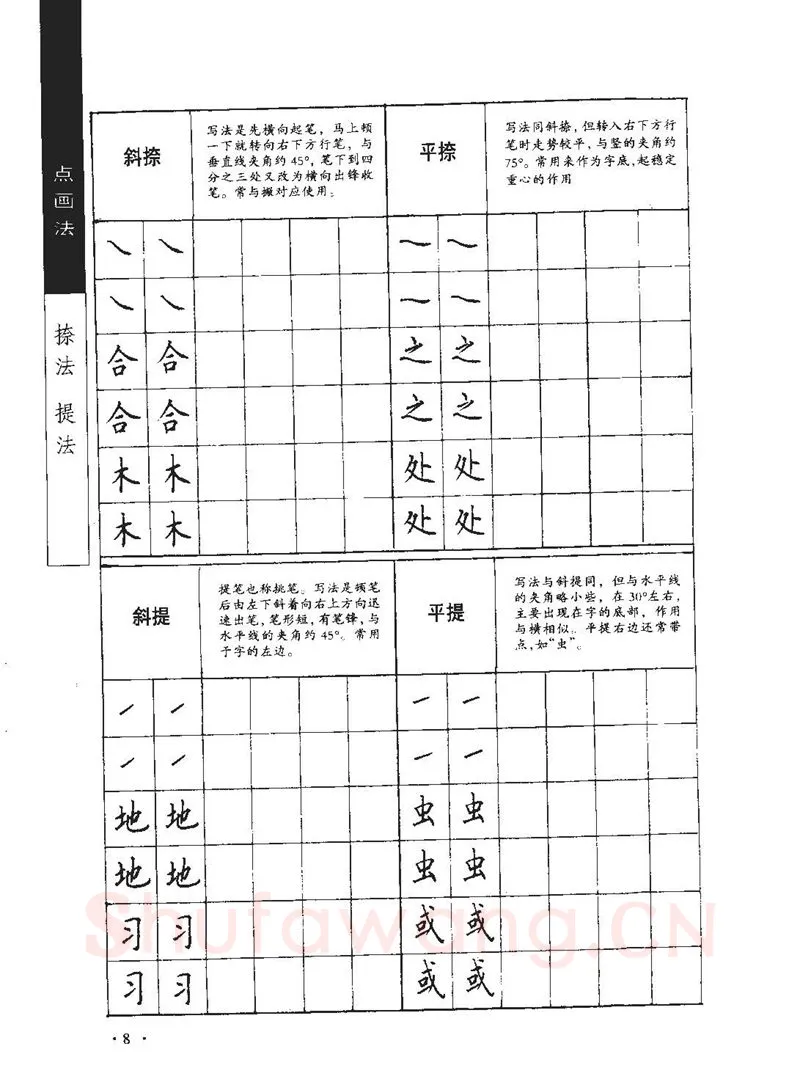 点画法
捺法 提法
斜捺
写法是先横向起笔，马上顿
一下就转向右下方行笔，与
垂直线夹角约45°，笔下到四
分之三处又改为横向出锋收
笔。常与撇对应使用。
平捺
写法同斜捺，但转入右下方行
笔时走势较平，与竖的夹角约
75°。常用来作为字底，起稳定
重心的作用
㇏ ㇏ ㇏ ㇏
㇏ ㇏ ㇏ ㇏
合 合 之 之
合 合 之 之
木 木 处 处
木 木 处 处
斜提
提笔也称挑笔。写法是顿笔
后由左下斜着向右上方向迅
速出笔，笔形短，有笔锋，与
水平线的夹角约45°。常用
于字的左边。
平提
写法与斜提同，但与水平线
的夹角略小些，在30°左右，
主要出现在字的底部，作用
与横相似。平提右边还常带
点，如“虫”。
㇀ ㇀ ㇀ ㇀
㇀ ㇀ ㇀ ㇀
地 地 虫 虫
地 地 虫 虫
习 习 或 或
习 习 或 或
Shufawang.CN
·8·